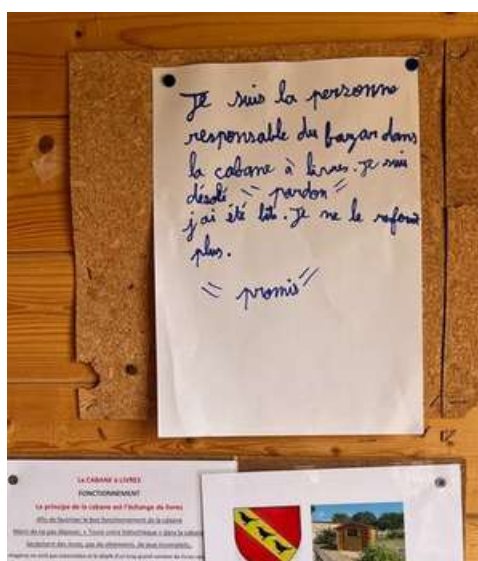 Je suis la personne
responsable du bazar dans
la cabane à livres. Je suis
désolé " pardon "
j'ai été bête. Je ne le referai
plus.
" promis "
La CABANE à LIVRES
FONCTIONNEMENT
Le principe de la cabane est l'échange de livres
Afin de favoriser le bon fonctionnement de la cabane
Merci de ne pas déposer « Toute votre bibliothèque » dans la cabane